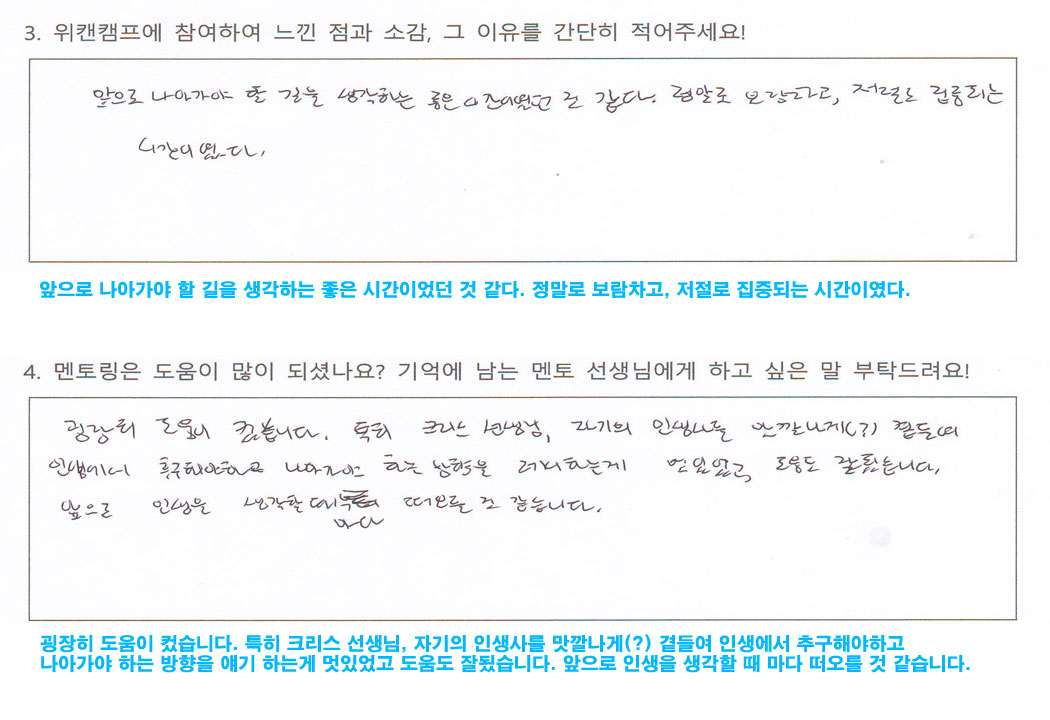 3. 위캔캠프에 참여하여 느낀 점과 소감, 그 이유를 간단히 적어주세요!
앞으로 나아가야 할 길을 생각하는 좋은 시간이었던 것 같다. 정말로 보람차고, 저절로 집중되는
시간이였다.
앞으로 나아가야 할 길을 생각하는 좋은 시간이었던 것 같다. 정말로 보람차고, 저절로 집중되는 시간이였다.
4. 멘토링은 도움이 많이 되셨나요? 기억에 남는 멘토 선생님에게 하고 싶은 말 부탁드려요!
굉장히 도움이 컸습니다. 특히 크리스 선생님, 자기의 인생사를 맛깔나게(?) 곁들여
인생에서 추구해야하고 나아가야 하는 방향을 얘기하는게 멋있었고 도움도 잘됬습니다.
앞으로 인생을 생각할 때 마다 떠오를 것 같습니다.
굉장히 도움이 컸습니다. 특히 크리스 선생님, 자기의 인생사를 맛깔나게(?) 곁들여 인생에서 추구해야하고
나아가야 하는 방향을 얘기 하는게 멋있었고 도움도 잘됬습니다. 앞으로 인생을 생각할 때 마다 떠오를 것 같습니다.